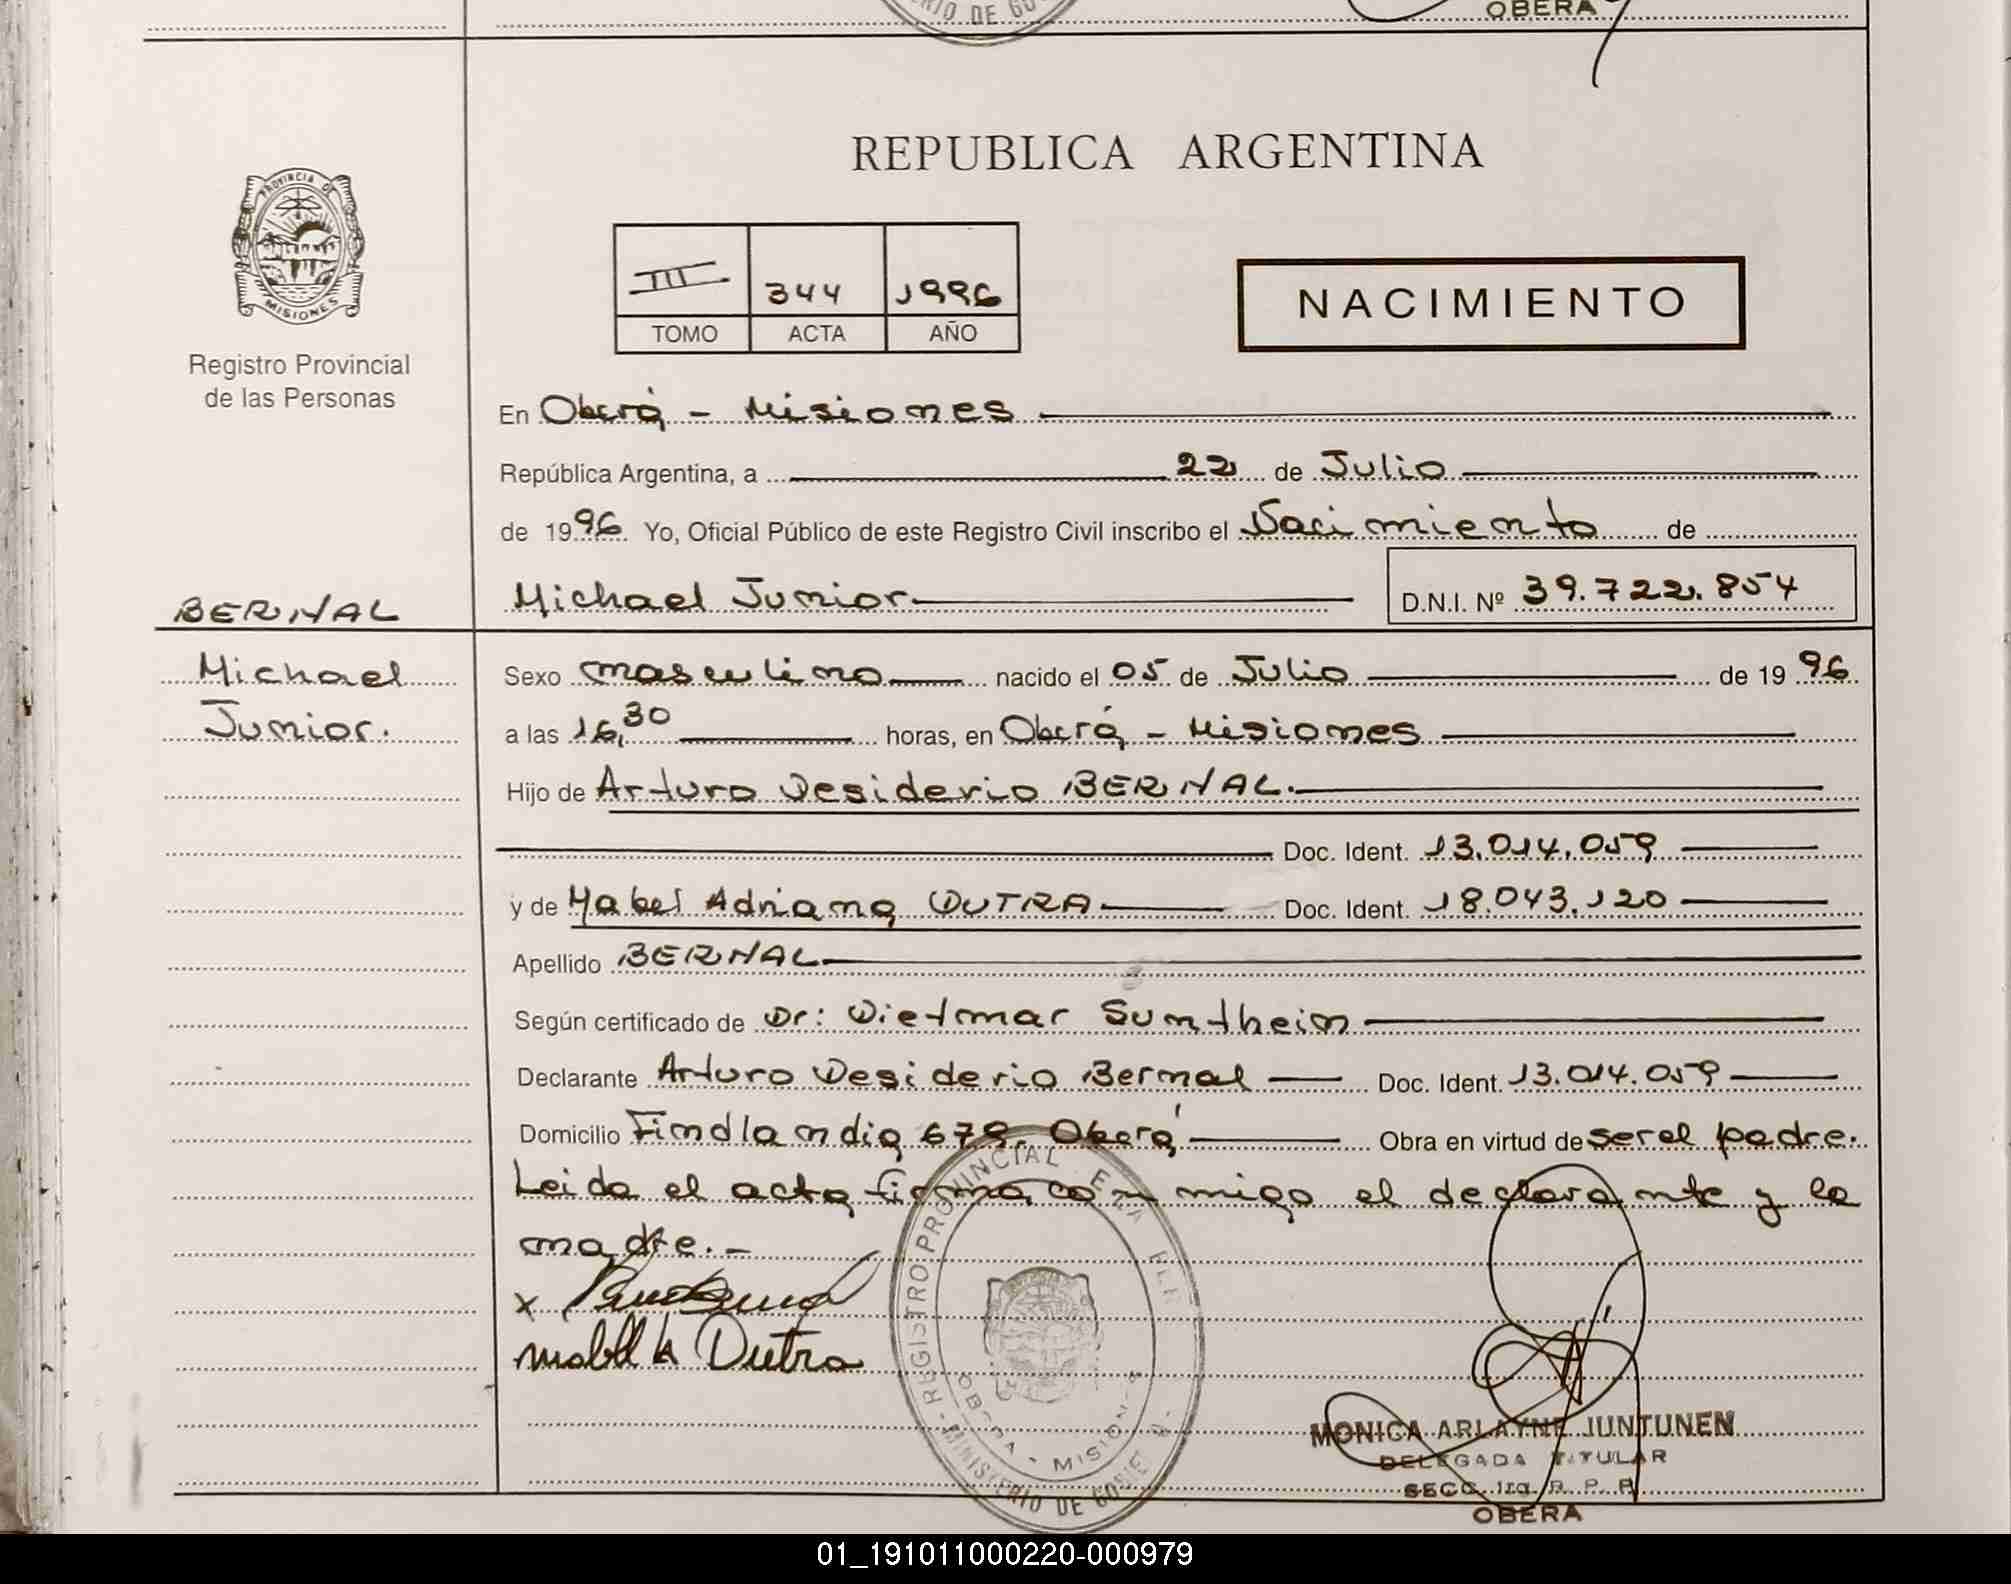 RIO DE GO
OBERA
REPUBLICA ARGENTINA
PROVINCIA DE
MISIONES
Registro Provincial
de las Personas
III 344 1996
TOMO ACTA AÑO
NACIMIENTO
En Oberá - Misiones
República Argentina, a 22 de Julio
de 1996 Yo, Oficial Público de este Registro Civil inscribo el Nacimiento de
BERNAL
Michael Junior D.N.I. Nº 39.722.854
Michael
Junior.
Sexo masculino nacido el 05 de Julio de 1996
a las 16,30 horas, en Oberá - Misiones
Hijo de Arturo Desiderio BERNAL.
Doc. Ident. 13.014.059
y de Mabel Adriana DUTRA Doc. Ident. 18.043.120
Apellido BERNAL
Según certificado de Dr: Dietmar Suntheim
Declarante Arturo Desiderio Bernal Doc. Ident. 13.014.059
Domicilio Findlandia 679. Oberá Obra en virtud de ser el padre.
Leida el acta firma conmigo el declarante y la
madre.-
x
Mabel A Dutra
REGISTRO PROVINCIAL DE LAS PER
MINISTERIO DE GOBIE
OBERA - MISIONES
MONICA ARLAYNE JUNTUNEN
DELEGADA TITULAR
SECC. 1ra. R. P. P.
OBERA
01_191011000220-000979